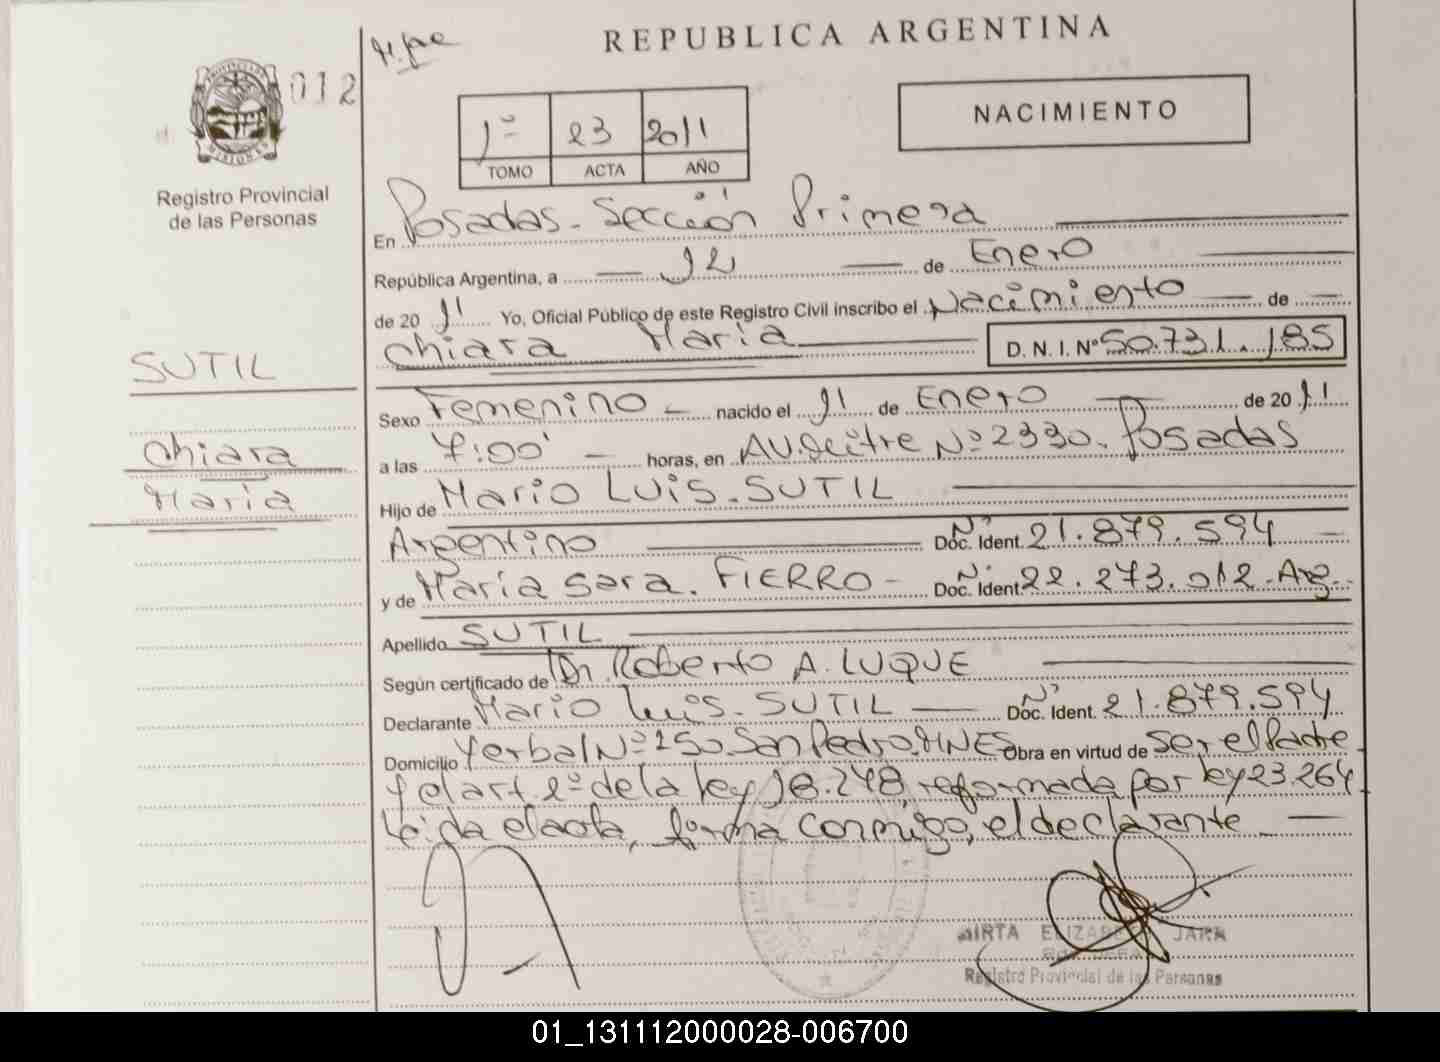 REPUBLICA ARGENTINA
012
PROVINCIA DE
MISIONES
Registro Provincial
de las Personas
NACIMIENTO
1º 23 2011
TOMO ACTA AÑO
En Posadas - Sección Primera
República Argentina, a 12 de Enero
de 2011 Yo, Oficial Público de este Registro Civil inscribo el Nacimiento de
Chiara María D.N.I. Nº 50.731.185
SUTIL
Chiara
María
Sexo Femenino nacido el 11 de Enero de 2011
a las 7:00 horas, en AV. Mitre Nº 2330. Posadas
Hijo de Mario Luis. SUTIL
Argentino Doc. Ident. Nº 21.879.594
y de María Sara. FIERRO - Doc. Ident. Nº 22.273.012 - Arg.
Apellido SUTIL
Según certificado de Dr. Roberto A. LUQUE
Declarante Mario Luis - SUTIL Doc. Ident. Nº 21.879.594
Domicilio Yerbal Nº 250. San Pedro. MNES Obra en virtud de Ser el Padre
y el art. 2º de la Ley 18.248, reformada por ley 23.264
Leída el acta, firma conmigo, el declarante
MIRTA ELIZABETH JARA
Registro Provincial de las Personas
01_131112000028-006700